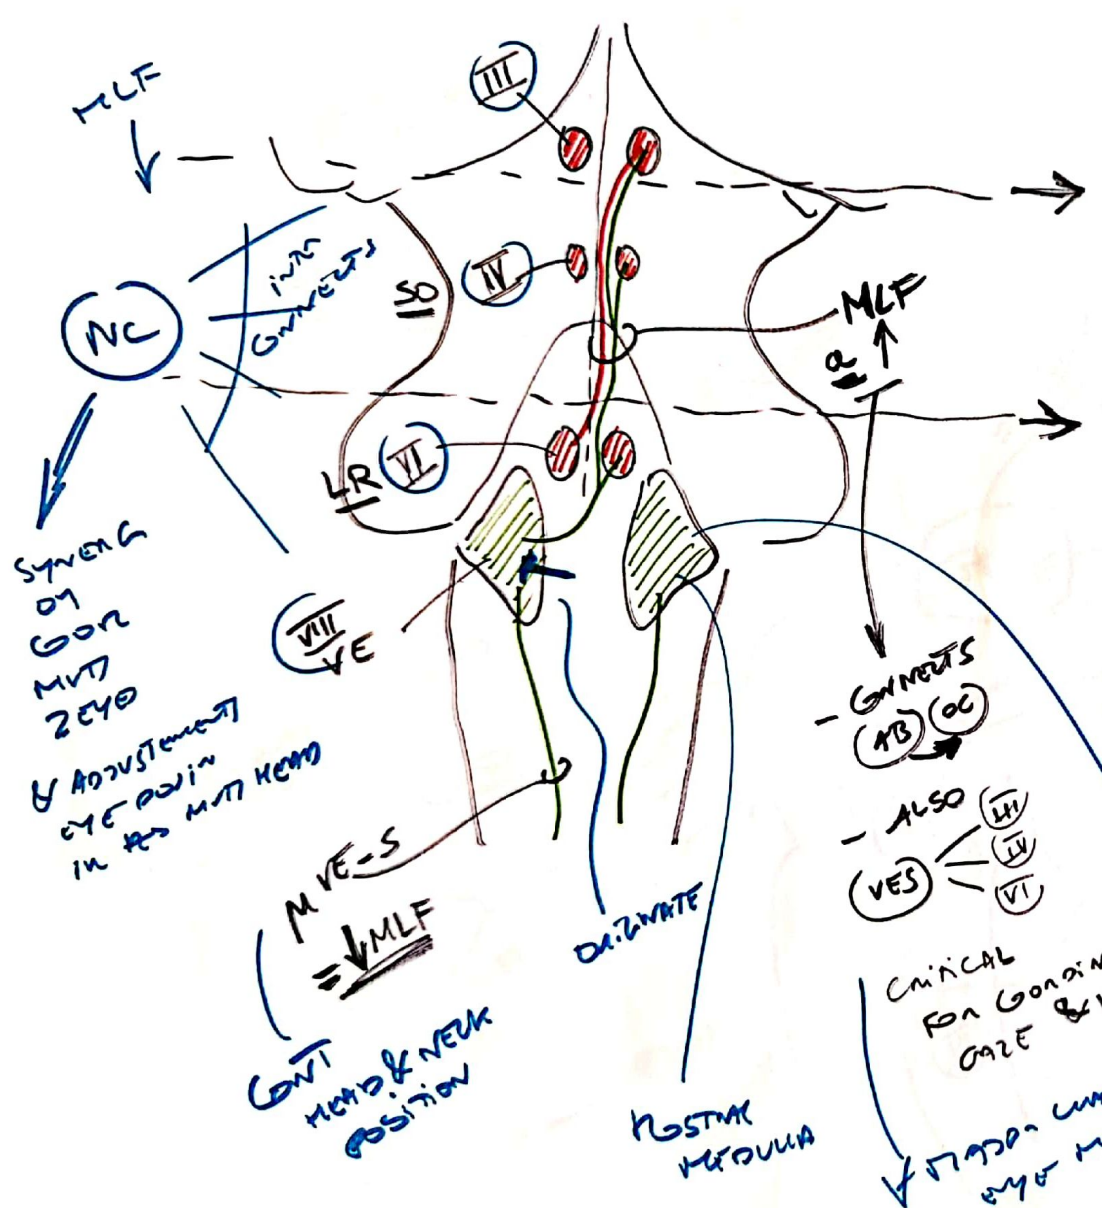 MLF
III
INTR
CONNECTS
NC
SO
IV
MLF
a
LR
VI
SYNERG
COOR
MVT
2 EYE
VIII
VE
ADJUSTEMENT
EYE
IN
MVT HEAD
CONNECTS
AB OC
ALSO
III
VES
IV
VI
M VE-S
↓MLF
ORIGINATE
CRITICAL
FOR COORDIN
GAZE &
CONT
HEAD & NECK
POSITION
ROSTRAL
MEDULLA
EYE M